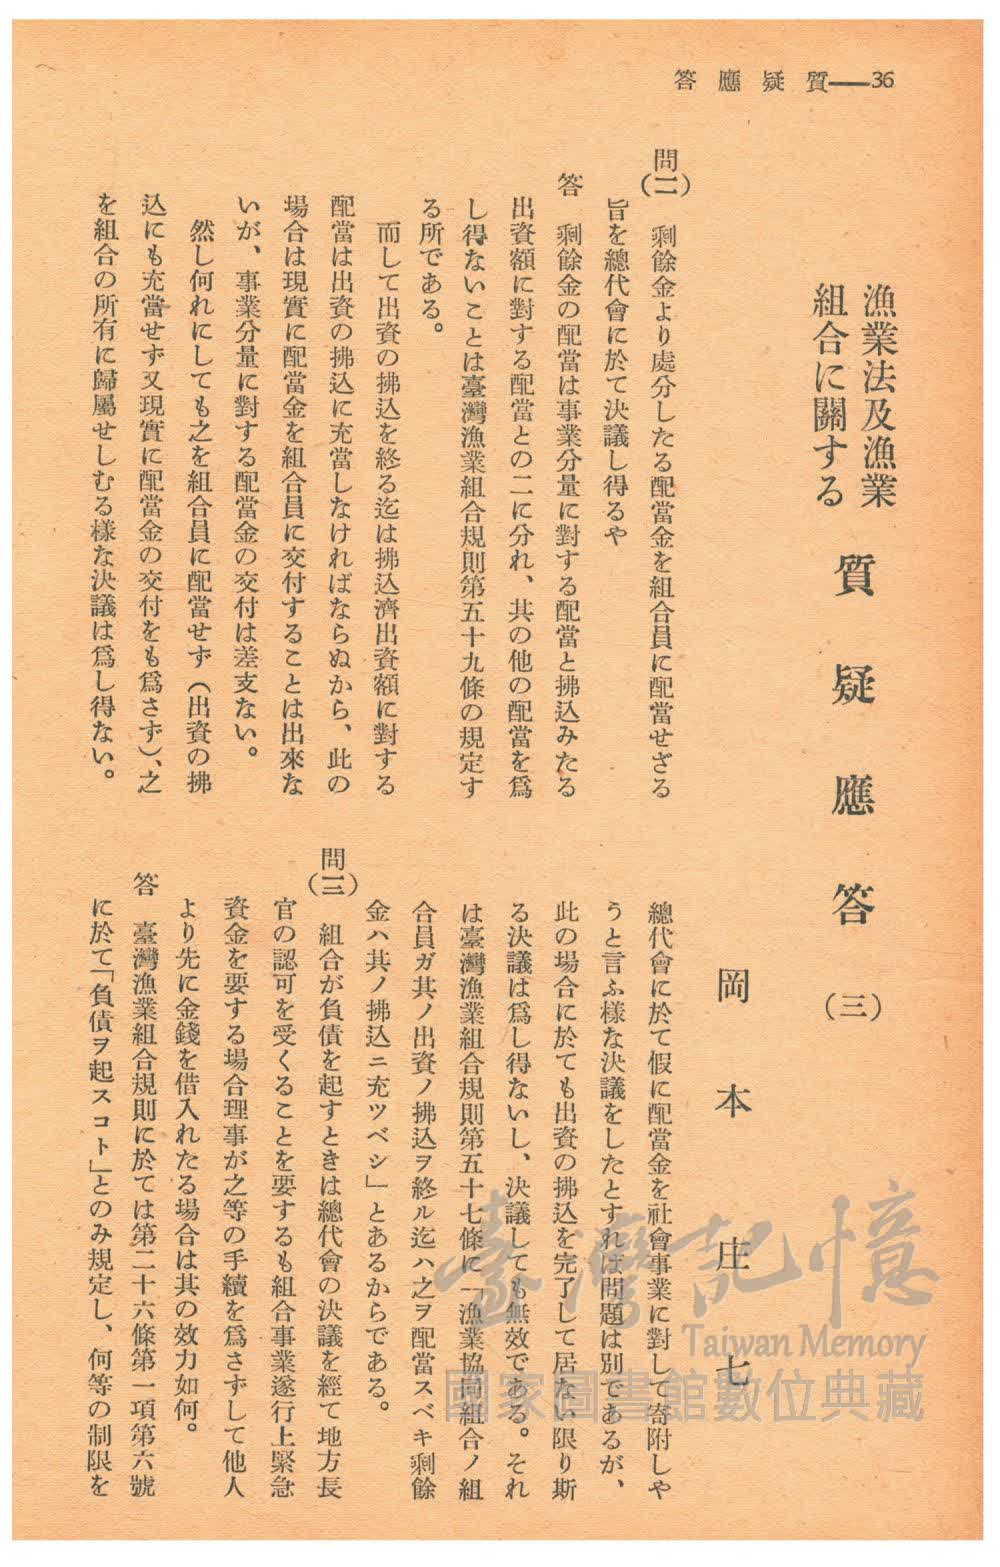 36——質疑應答
漁業法及漁業
組合に關する
質疑應答(三)
岡本庄七
問(二) 剩餘金より處分したる配當金を組合員に配當せざる
旨を總代會に於て決議し得るや
答 剩餘金の配當は事業分量に對する配當と拂込みたる
出資額に對する配當との二に分れ、其の他の配當を爲
し得ないことは臺灣漁業組合規則第五十九條の規定す
る所である。
而して出資の拂込を終る迄は拂込濟出資額に對する
配當は出資の拂込に充當しなければならぬから、此の
場合は現實に配當金を組合員に交付することは出來な
いが、事業分量に對する配當金の交付は差支ない。
然し何れにしても之を組合員に配當せず(出資の拂
込にも充當せず又現實に配當金の交付をも爲さず)、之
を組合の所有に歸屬せしむる樣な決議は爲し得ない。
總代會に於て假に配當金を社會事業に對して寄附しや
うと言ふ樣な決議をしたとすれば問題は別であるが、
此の場合に於ても出資の拂込を完了して居ない限り斯
る決議は爲し得ないし、決議しても無效である。それ
は臺灣漁業組合規則第五十七條に「漁業協同組合ノ組
合員ガ其ノ出資ノ拂込ヲ終ル迄ハ之ヲ配當スベキ剩餘
金ハ其ノ拂込ニ充ツベシ」とあるからである。
問(三) 組合が負債を起すときは總代會の決議を經て地方長
官の認可を受くることを要するも組合事業遂行上緊急
資金を要する場合理事が之等の手續を爲さずして他人
より先に金錢を借入れたる場合は其の效力如何。
答 臺灣漁業組合規則に於ては第二十六條第一項第六號
に於て「負債ヲ起スコト」とのみ規定し、何等の制限を
臺灣記憶
Taiwan Memory
國家圖書館數位典藏